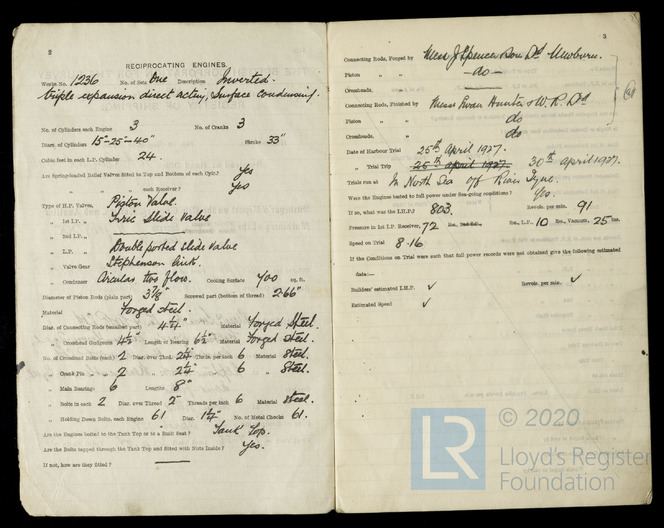 2
RECIPROCATING ENGINES.
Works No. 1236 No. of Sets One Description Inverted
triple expansion direct acting, Surface Condensing.
No. of Cylinders each Engine 3 No. of Cranks 3
Diars. of Cylinders 15"-25"-40" Stroke 33"
Cubic feet in each L.P. Cylinder 24.
Are Spring-loaded Relief Valves fitted to Top and Bottom of each Cylr.? Yes
" " " each Receiver? Yes
Type of H.P. Valves, Piston Valve.
" 1st I.P. " Slide Valve
" 2nd I.P. "
" L.P. " Double ported slide valve
" Valve Gear Stephenson Link.
" Condenser Circular two flow. Cooling Surface 700 sq. ft.
Diameter of Piston Rods (plain part) 3 7/8" Screwed part (bottom of thread) 2.66"
Material Forged Steel.
Diar. of Connecting Rods (smallest part) 4 1/4" Material Forged Steel.
" Crosshead Gudgeons 4 1/2" Length of Bearing 6 1/2" Material Forged steel.
No. of Crosshead Bolts (each) 2 Diar. over Thrd. 2 1/4 Thrds. per inch 6 Material Steel.
" Crank Pin " " 2 " 2 1/4 " 6 " Steel.
" Main Bearings 6 Lengths 8"
" Bolts in each 2 Diar. over Thread 2" Threads per inch 6 Material steel.
" Holding Down Bolts, each Engine 61 Diar. 1 1/4" No. of Metal Chocks 61.
Are the Engines bolted to the Tank Top or to a Built Seat? Tank Top.
Are the Bolts tapped through the Tank Top and fitted with Nuts Inside? Yes.
If not, how are they fitted?
3
Connecting Rods, Forged by Messr J Spencer & Son Ld Newburn.
Piston " " do
Crossheads, " "
Connecting Rods, Finished by Messr Swan Hunter & W. R. Ld
Piston " " do
Crossheads, " " do
Date of Harbour Trial 25th April 1927.
" Trial Trip 25th April 1927. 30th April 1927.
Trials run at In North Sea off River Tyne.
Were the Engines tested to full power under Sea-going conditions? Yes
If so, what was the I.H.P.? 803. Revols. per min. 91
Pressure in 1st I.P. Receiver, 72 lbs., 2nd I.P. lbs., L.P. 10 lbs., Vacuum, 25 ins.
Speed on Trial 8.16
If the Conditions on Trial were such that full power records were not obtained give the following estimated
data:—
Builders' estimated I.H.P. ✓ Revols. per min. ✓
Estimated Speed ✓
© 2020
LR
Lloyd's Register
Foundation